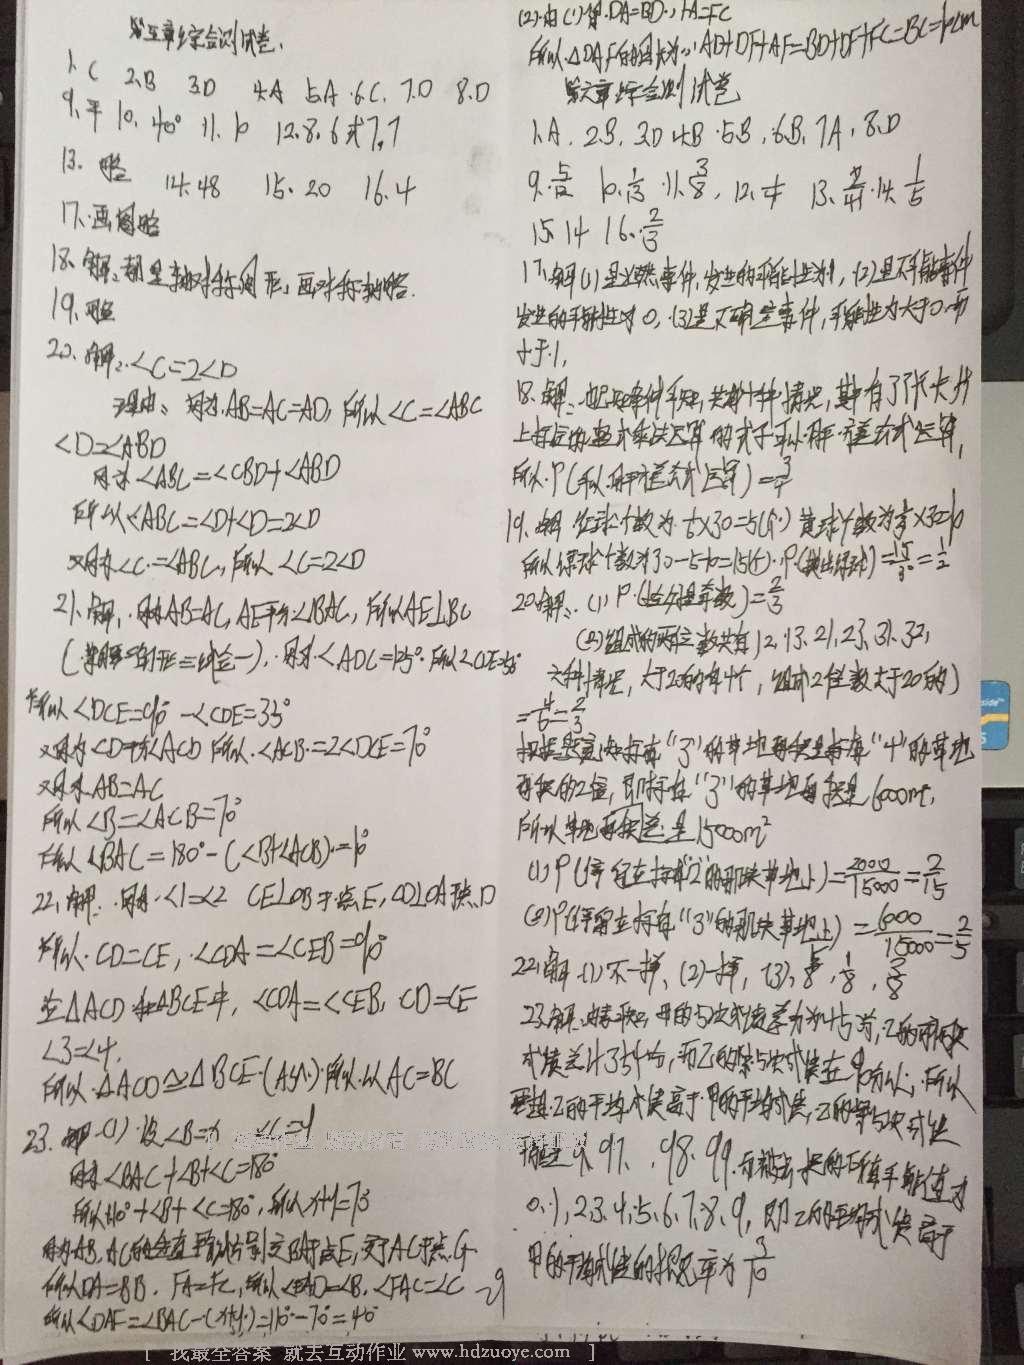 第五章综合测试卷.
1、C 2、B 3、D 4、A 5、A 6、C、 7、D 8、D
9、平 10、40° 11、10 12、8、6或7、7
13、略 14、48 15、20 16、4
17、画图略
18、解:都是轴对称图形,画对称轴略.
19、略
20、解:<C=2<D
理由:因为AB=AC=AD,所以<C=<ABC
<D=<ABD
因为<ABC=<CBD+<ABD
所以<ABC=<D+<D=2<D
又因为<C=<ABC,所以<C=2<D
21、解:因为AB=AC,AE平分<BAC,所以AE⊥BC
(等腰三角形三线合一),因为<ADC=125°所以<CDE=55°
所以<DCE=90°-<CDE=35°
又因为CD平分<ACD 所以<ACB=2<DCE=70°
又因为AB=AC
所以<B=<ACB=70°
所以<BAC=180°-(<B+<ACB)=40°
22、解:因为<1=<2 CE⊥OB于点E,CD⊥OA于点D
所以CD=CE,<CDA=<CEB=90°
在△ACD和△BCE中,<CDA=<CEB,CD=CE
<3=<4.
所以△ACD≌△BCE(ASA)所以AC=BC
23、解(1)设<B=x <C=y
因为<BAC+<B+<C=180°
所以110°+<B+<C=180°,所以x+y=70°
因为AB、AC的垂直平分线分别交BA于点E,交于AC于点G
所以DA=BD.FA=FC,所以<BAD=<B.<FAC=<C
所以<DAF=<BAC-(x+y)=110°-70°=40°
(2)由(1)得DA=BD,FA=FC
所以△DAF的周长为:AD+DF+AF=BD+DF+FC=BC=10cm
第六章综合测试卷
1、A、2、B、3、D 4、B、5、B、6、B、7、A、8、D
9、5/12 10、1/13 11、3/8、12、 13、 14、1/5
15、14 16、2/3
17、解(1)是必然事件,发生的可能性为1,(2)是不可能事件
发生的可能性为0,(3)是不确定事件,可能性为大于0而
小于1,
18、解:
上标注的整式乘法运算的式子可以用平方差公式运算,
所以P(可以用平方差公式运算)=
19、解 红球个数为1/6×30=5(个)黄球个数为1/3×30=10
所以绿球个数为30-5-10=15(个).P(摸出绿球)=15/30=1/2
20、解:(1)P(恰好是奇数)=2/3
(2)组成的两位数共有12、13、21、23、31、32,
六种情况,大于20的有4个,组成2位数大于20的)
=4/6=2/3
根据题意知标有“3”的草地面积是标有“4”的草地
面积的2倍,即标有“3”的草地面积是6000m²,
所以草地面积总是15000m²
(1)P(停留在标有“2”的那块草地上)=2000/15000=2/15
(2)P(停留在标有“3”的那块草地上)=6000/15000=2/5
22、解(1)不一样,(2)一样,(3)、1/8,3/8
要想乙的平均成绩高于甲的平均成绩,乙的第5次成绩
97、98、99.
0、1、2、3、4、5、6、7、8、9,即乙的平均成绩高于
甲的平均成绩的概率为3/10
[ 找最全答案 就去互动作业 www.hdzuoye.com ]